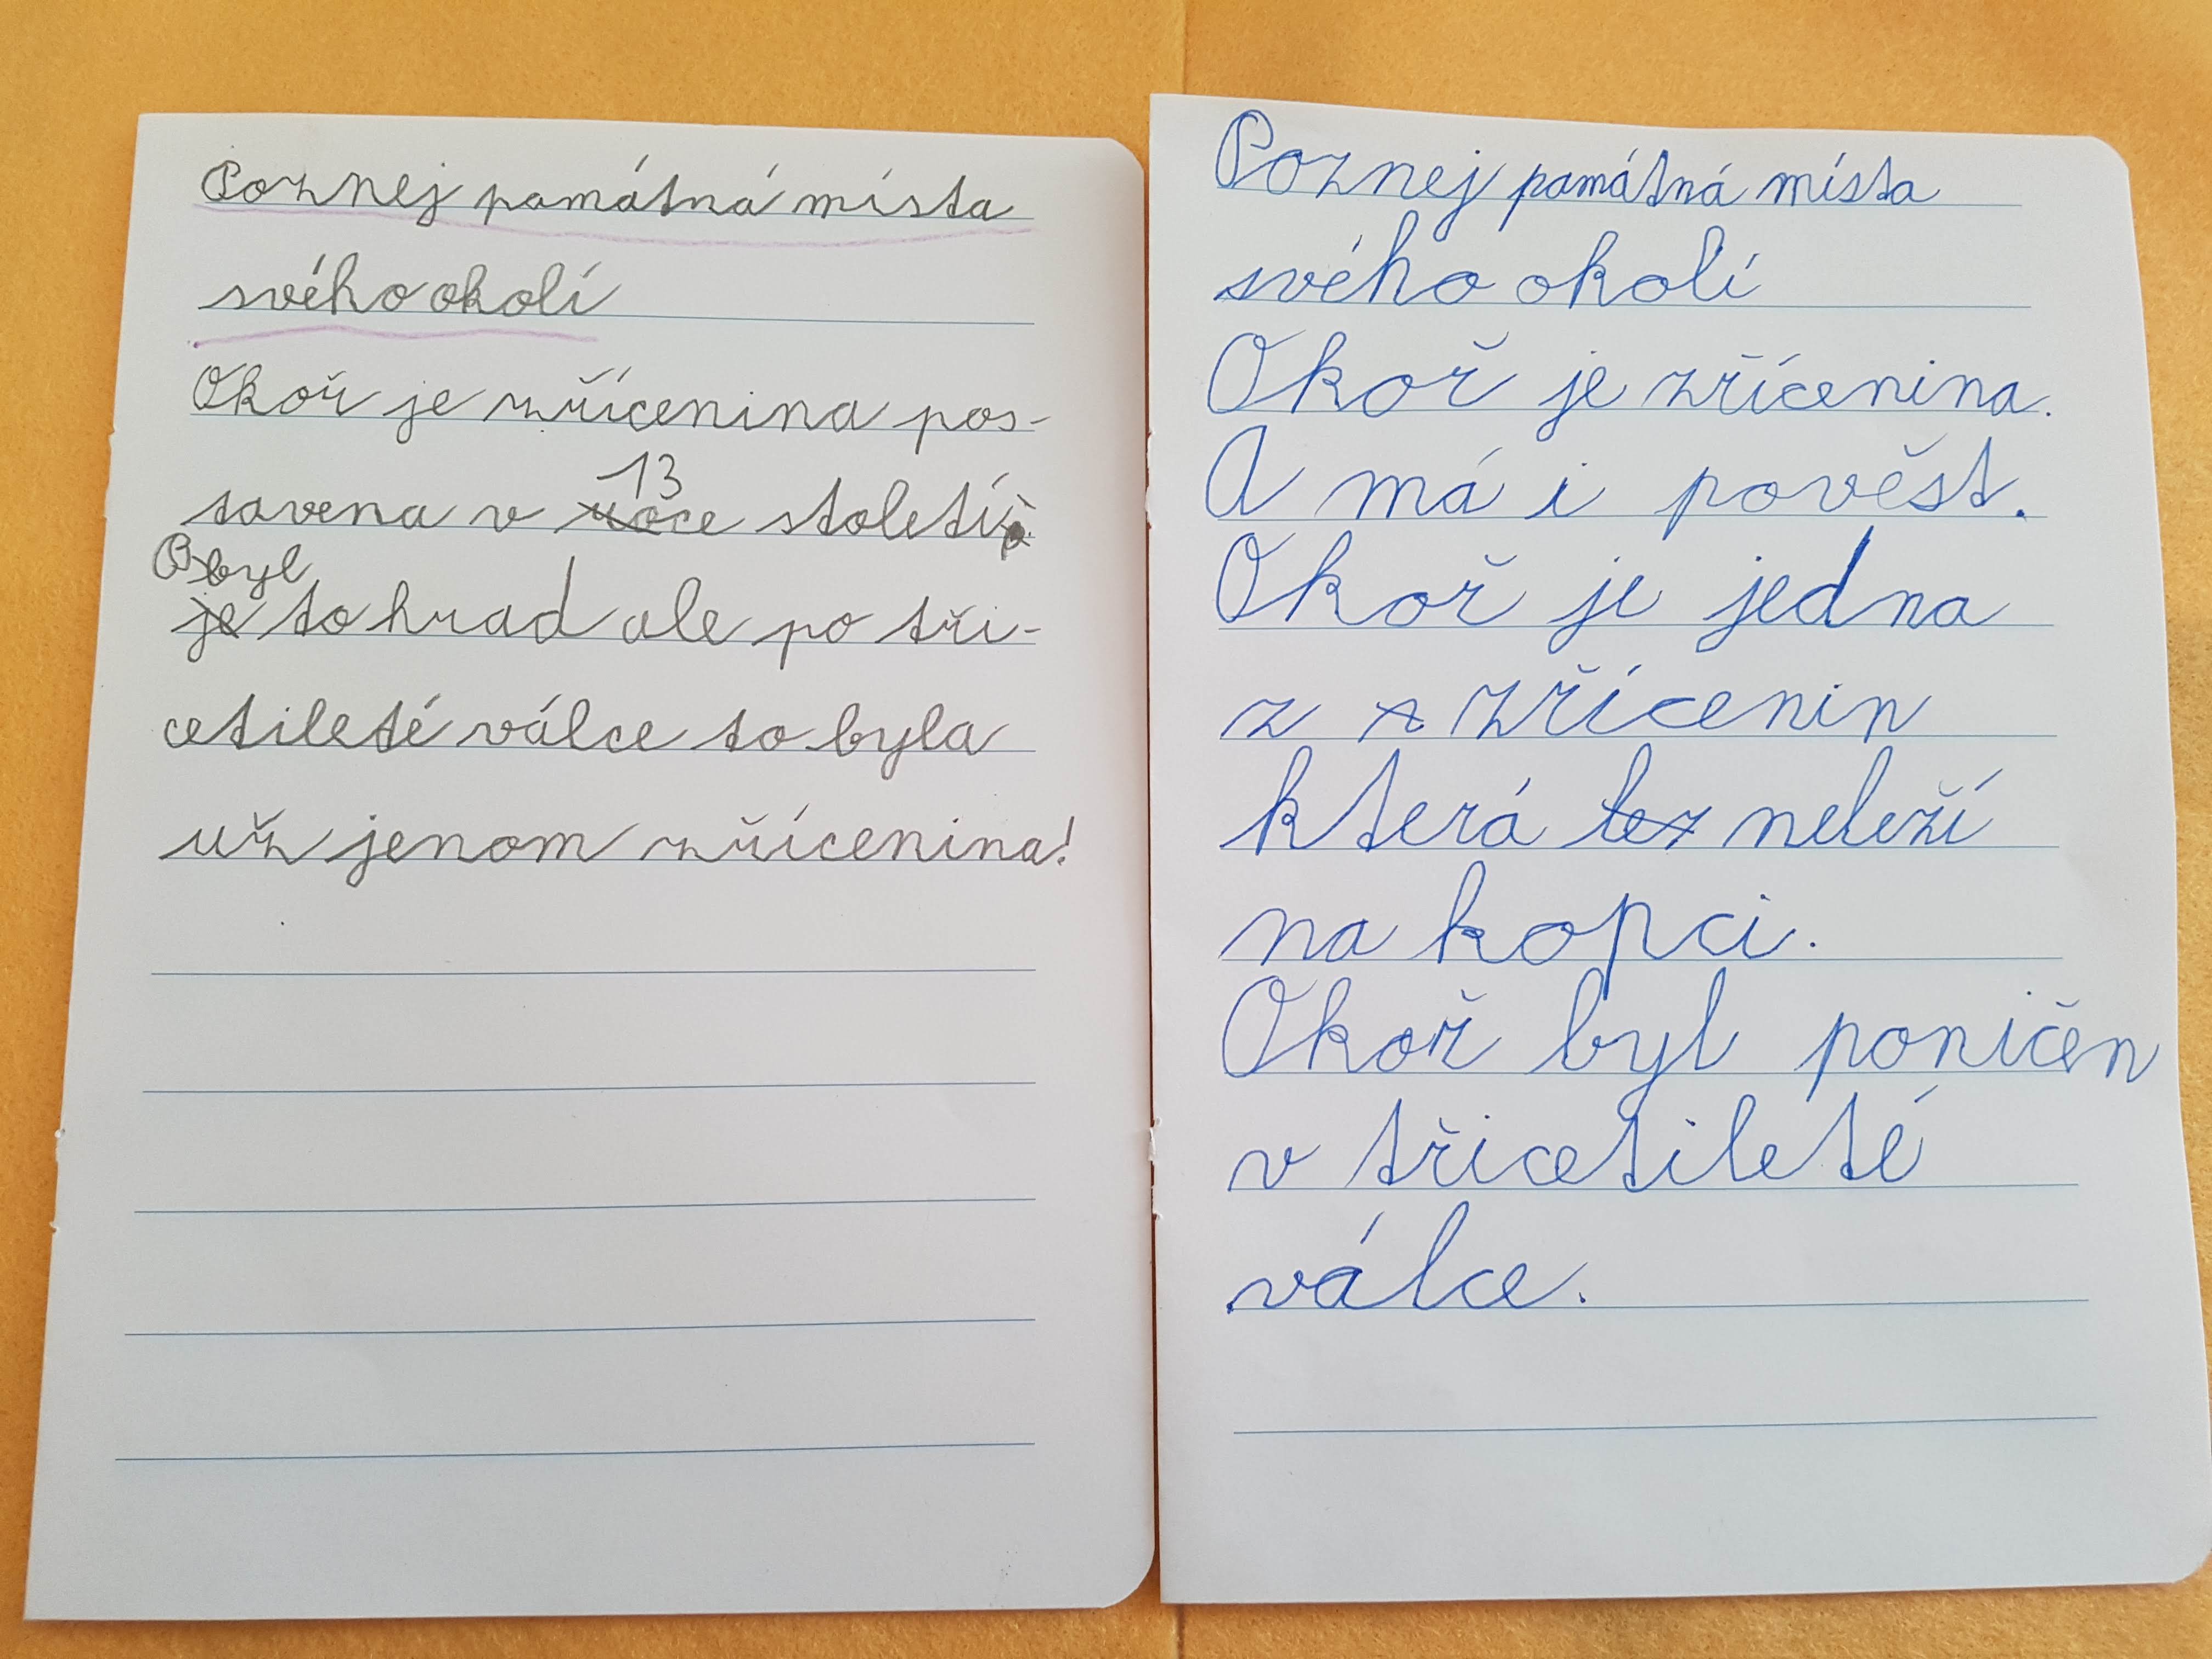 Poznej památná místa
svého okolí
Okoř je zřícenina pos-
13
tavena v roce století.
Byl
je to hrad ale po tři-
cetileté válce to byla
už jenom zřícenina!
Poznej památná místa
svého okolí
Okoř je zřícenina.
A má i pověst.
Okoř je jedna
z zřícenin
která lež neleží
na kopci.
Okoř byl poničen
v třicetileté
válce.